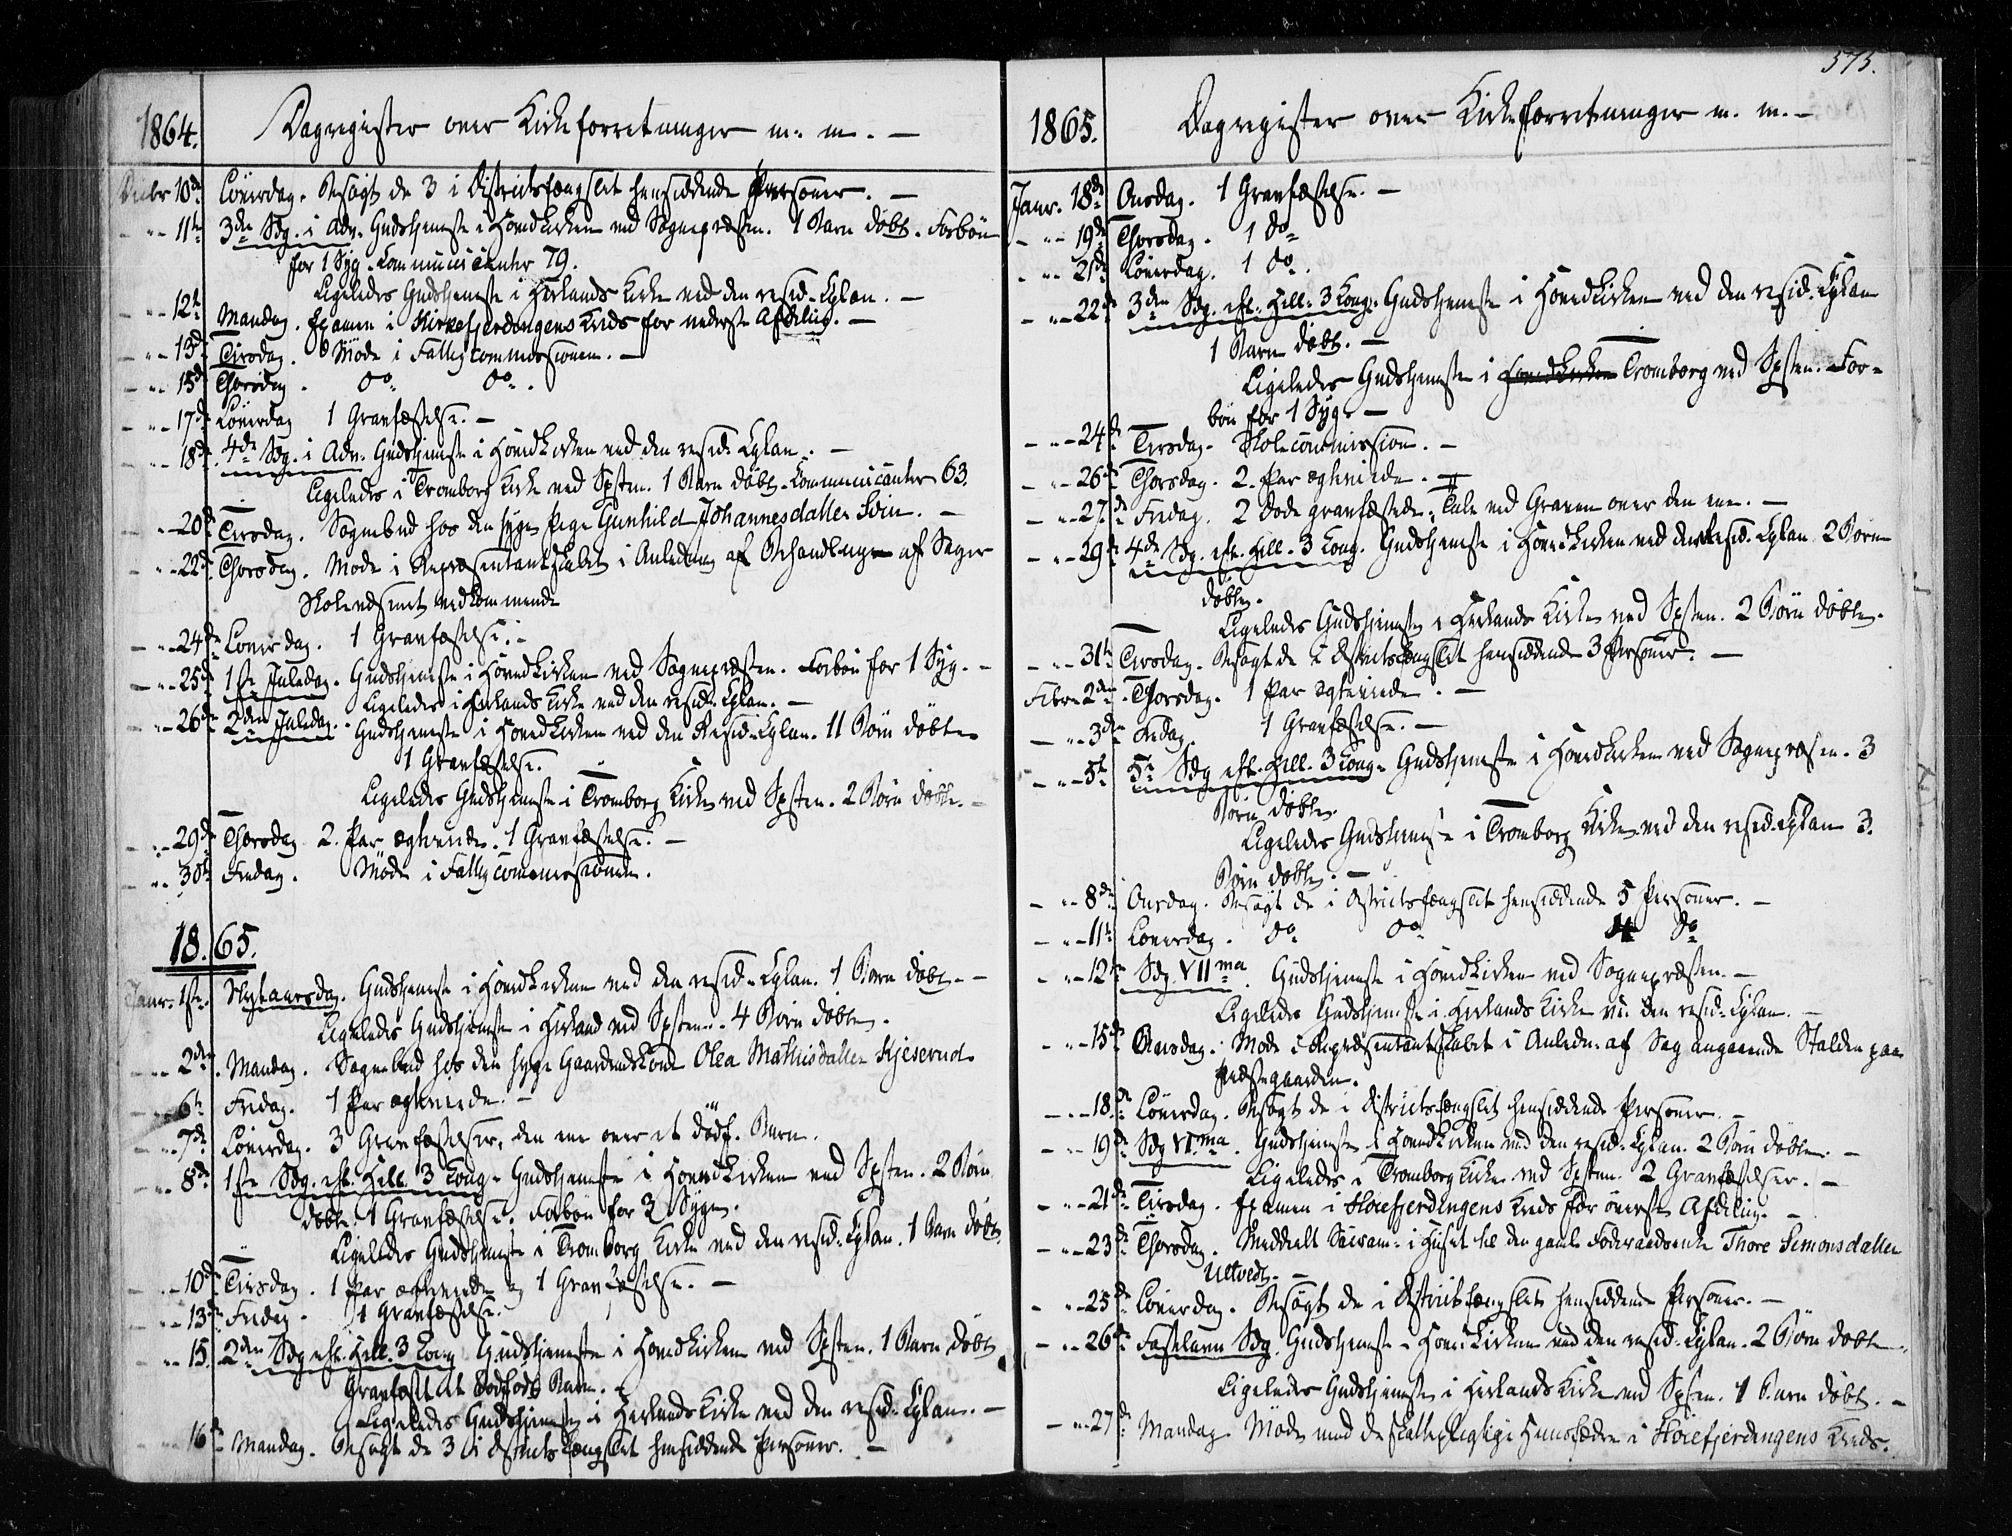 1864. Dagregister over Kirkeforretninger m. m. –
Decbr 10de Løverdag. Besøgt de 3 i Districtsfængslet hensiddende Personer. –
– " – 11te 3die Sdg. i Adv. Gudstjeneste i Hovedkirken ved Sognepræsten. 1 Barn døbt. Forbøn
for 1 Syg. Communicanter 79.
Ligeledes Gudstjeneste i Herlands Kirke ved den resid. Cplan. –
– " – 12te Mandag. Examen i Kirkefjerdingens Kreds for nederste Afdeling. –
– " – 13de Tirsdag. Møde i Fattigcommissionen. –
– " – 15de Thorsdag. do do.
– " – 17de Løverdag 1 Gravfæstelse. –
– " – 18de 4de Sdg. i Adv. Gudstjeneste i Hovedkirken ved den resid. Cplan. –
Ligeledes i Tromborg Kirke ved Spsten. 1 Barn døbt. Communicanter 63.
– " – 20de Tirsdag. Sognebud hos den syge Pige Gunhild Johannesdatter Svin. –
– " – 22de Thorsdag. Møde i Repræsentantskabet i Anledning af Behandlingen af Sager
Skolevæsenet vedkommende
– " – 24de Løverdag. 1 Gravfæstelse. –
– " – 25de 1ste Juledag. Gudstjeneste i Hovedkirken ved Sognepræsten. Forbøn for 1 Syg. –
Ligeledes i Herlands Kirke ved den resid. Cplan. –
– " – 26de 2den Juledag. Gudstjeneste i Hovedkirken ved den Resid. Cplan. 11 Børn døbte
1 Gravfæstelse.
Ligeledes Gudstjeneste i Tromborg Kirke ved Spsten. 2 Børn døbte. –
– " – 29de Thorsdag 2. Par ægteviede. 1 Gravfæstelse. –
– " – 30te Fredag. Møde i Fattigcommissionen.
1865.
Janr. 1ste. Nytaarsdag. Gudstjeneste i Hovedkirken ved den resid. Cplan. 1 Barn døbt. –
Ligeledes Gudstjeneste i Herland ved Spsten. 4 Børn døbte.
– " – 2den. Mandag. Sognebud hos den syge Gaardmandskone Olea Mathisdatter Kjeserud.
– " – 6te Fredag. 1 Par ægteviede. –
– " – 7de Løverdag. 3 Gravfæstelser, den ene over et dødf. Barn.
– " – 8de 1ste Sdg. eft. Hell. 3 Kong. Gudstjeneste i Hovedkirken ved Spsten. 2 Børn
døbte. 1 Gravfæstelse. Forbøn for 3 Syge.
Ligeledes Gudstjeneste i Tromborg Kirke ved den resid. Cplan. 1 Barn døbt.
– " – 10de Tirsdag. 1 Par ægteviede og 1 Gravfæstelse. –
– " – 13de Fredag. 1 Gravfæstelse.
– " – 15. 2den Sdg eft. Hell. 3 Kong Gudstjeneste i Hovedkirken ved Spsten. 1 Barn døbt
Gravfæstet et dødfødt Barn. –
Ligeledes Gudstjeneste i Herlands Kirke ved den resid. Cplan. –
– " – 16te Mandag. Besøgt de 3 i Districtsfængslet hensiddende Personer. –
575.
1865. Dagregister over Kirkeforretninger m. m. –
Janr. 18de Onsdag. 1 Gravfæstelse. –
– " – 19de Thorsdag. 1 do
– " – 21de Løverdag. 1 do.
– " – 22de 3den Sdg. eft. Hell. 3 Kong. Gudstjeneste i Hovedkirken ved den resid. Cplan
1 Barn døbt. –
Ligeledes Gudstjeneste i Hovedkirken Tromborg ved Spsten. For-
bøn for 1 Syg. –
– " – 24de Tirsdag. Skolecommission. –
– " – 26de Thorsdag. 2. Par ægteviede. –
– " – 27de Fredag. 2 døde gravfæstede; Tale ved Graven over den ene. –
– " – 29de 4de Sdg. eft. Hell. 3 Kong. Gudstjeneste i Hovedkirken ved den resid. Cplan 2 Børn
døbte.
Ligeledes Gudstjeneste i Herlands Kirke ved Spsten. 2 Børn døbte.
– " – 31te Tirsdag. Besøgt de i Districtsfængslet hensiddende 3 Personer. –
Febr. 2den Thorsdag. 1 Par ægteviede. –
– " – 3die Fredag 1 Gravfæstelse. –
– " – 5te 5te Sdg eft. Hell. 3 Kong. Gudstjeneste i Hovedkirken ved Sognepræsten. 3
Børn døbte.
Ligeledes Gudstjeneste i Tromborg Kirke ved den resid. Cplan 3.
Børn døbte. –
– " – 8de Onsdag. Besøgt de i Districtsfængslet hensiddende 5 Personer. –
– " – 11te Løverdag. do do 4 do
– " – 12te Sdg. VIIma. Gudstjeneste i Hovedkirken ved Sognepræsten. –
Ligeledes Gudstjeneste i Herlands Kirke ved den resid. Cplan. –
– " – 15de Onsdag. Møde i Repræsentantskabet i Anledn. af Sag angaaende Stalden paa
Præstegaarden.
– " – 18de Løverdag. Besøgt de i Districtsfængslet hensiddende Personer. –
– " – 19de Sdg VIma. Gudstjeneste i Hovedkirken ved den resid. Cplan. 2 Børn døbte. –
Ligeledes i Tromborg Kirke ved Spsten. 2 Gravfæstelser. –
– " – 21de Tirsdag. Examen i Høiefjerdingens Kreds for øverste Afdeling. –
– " – 23de Thorsdag. Meddeelt Sacram. i Huset til den gamle Føderaadsenke Thore Simonsdatter
Ultvedt. –
– " – 25de Løverdag. Besøgt de i Districtsfængslet hensiddende Personer. –
– " – 26de Fastelavns Sdg. Gudstjeneste i Hovedkirken ved den resid. Cplan. 2 Børn døbte.
Ligeledes Gudstjeneste i Herlands Kirke ved Spsten. 1 Barn døbt. –
– " – 27de Mandag Møde med de skattepligtige Huusfædre i Høiefjerdingens Kreds.